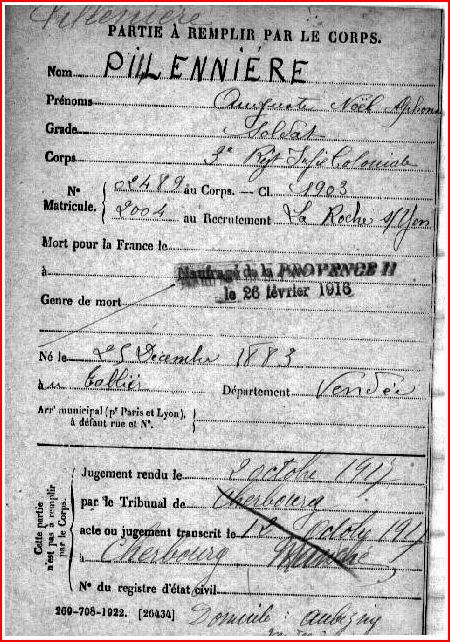 Pillenniere
PARTIE À REMPLIR PAR LE CORPS.
Nom PILLENNIÈRE
Prénoms Auguste Noël Alphons
Grade Soldat
Corps 3e Rgt Infie Coloniale
N° 02489 au Corps. — Cl. 1903
Matricule. 2004 au Recrutement La Roche s/Yon
Mort pour la France le
à
Naufragé de la PROVENCE II
le 26 février 1916
Genre de mort
Né le 25 Décembre 1883
à Tablier Département Vendée
Arr* municipal (p* Paris et Lyon),
à défaut rue et N°.
Cette partie
n'est pas à remplir
par le Corps.
Jugement rendu le 2 octobre 1917
par le Tribunal de Cherbourg
acte ou jugement transcrit le 12 octobre 1917
à Cherbourg Manche
N° du registre d'état civil
269-708-1922. [26434] Domicile : Aubigny